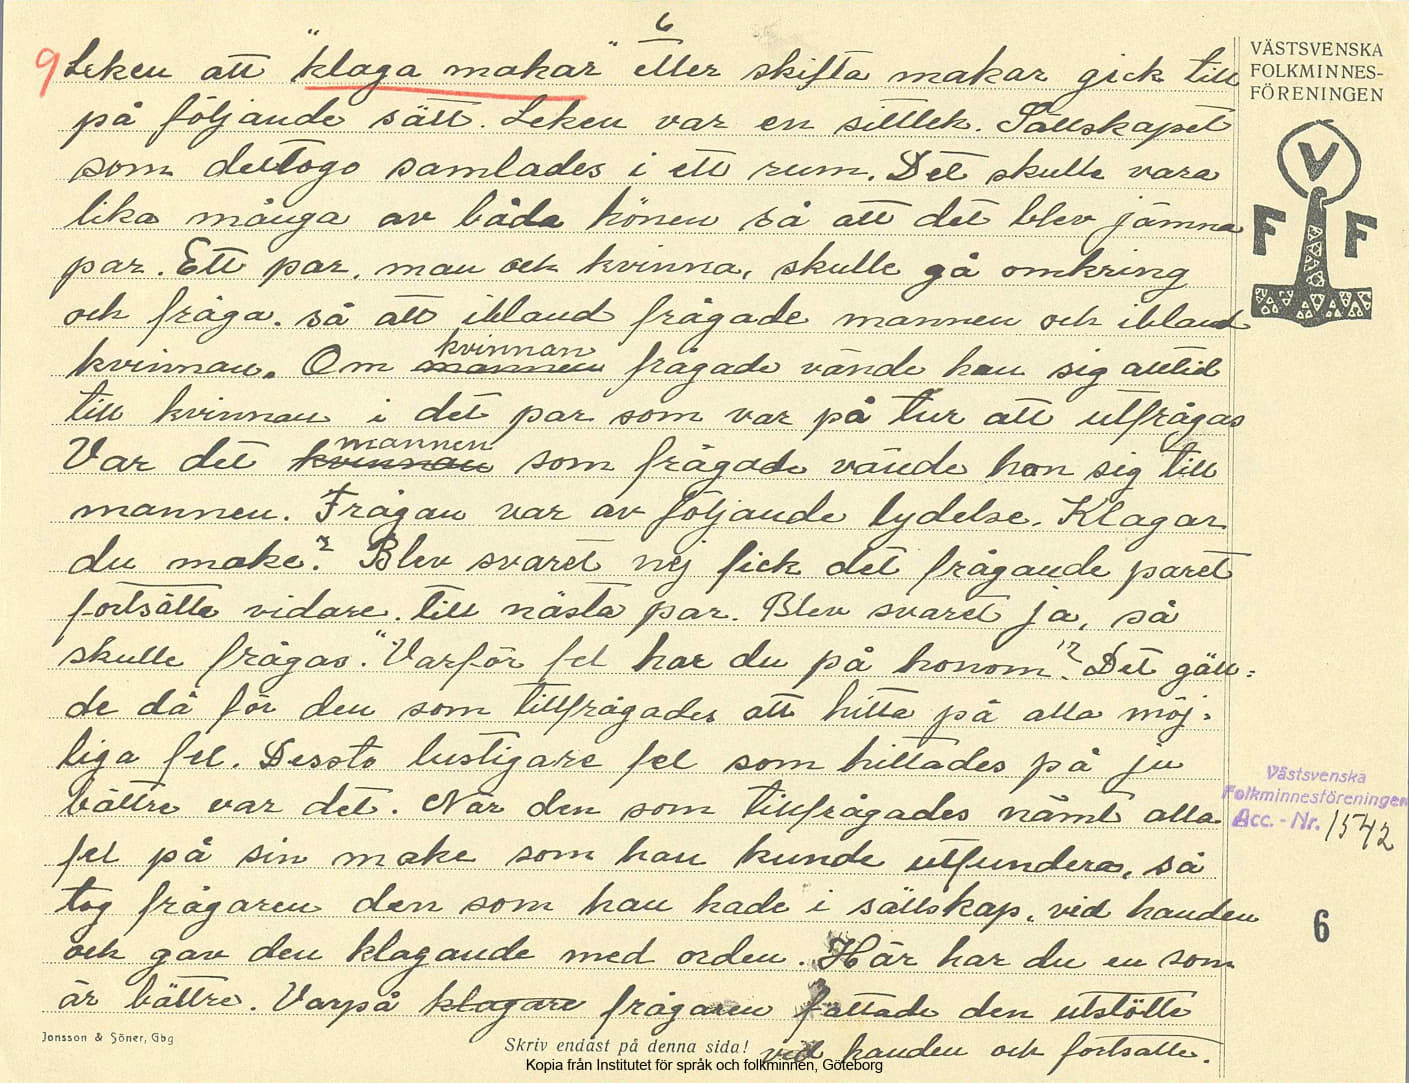 6
9 Leken att "klaga makar" eller skifta makar gick till
på följande sätt. Leken var en sittlek. Sällskapet
som deltogo samlades i ett rum. Det skulle vara
lika många av båda könen så att det blev jämna
par. Ett par, man och kvinna, skulle gå omkring
och fråga. så att ibland frågade mannen och ibland
kvinnan. Om mannen kvinnan frågade vände han sig alltid
till kvinnan i det par som var på tur att utfrågas
Var det kvinnan mannen som frågade vände hon sig till
mannen. Frågan var av följande lydelse. Klagar
du make? Blev svaret nej fick det frågande paret
fortsätta vidare till nästa par. Blev svaret ja, så
skulle frågas. "Varför fel har du på honom"? Det gäll=
de då för den som tillfrågades att hitta på alla möj=
liga fel. Dessto lustigare fel som hittades på ju
bättre var det. När den som tillfrågades nämt alla
fel på sin make som han kunde utfundera, så
tog frågaren den som han hade i sällskap, vid handen
och gav den klagande med orden. Här har du en som
är bättre. Varpå klagare frågaren fattade den utstötte
vid handen och fortsatte.
VÄSTSVENSKA
FOLKMINNES-
FÖRENINGEN
V
F F
Västsvenska
Folkminnesföreningen
Acc. - Nr. 1542
6
Jonsson & Söner, Gbg
Skriv endast på denna sida!
Kopia från Institutet för språk och folkminnen, Göteborg